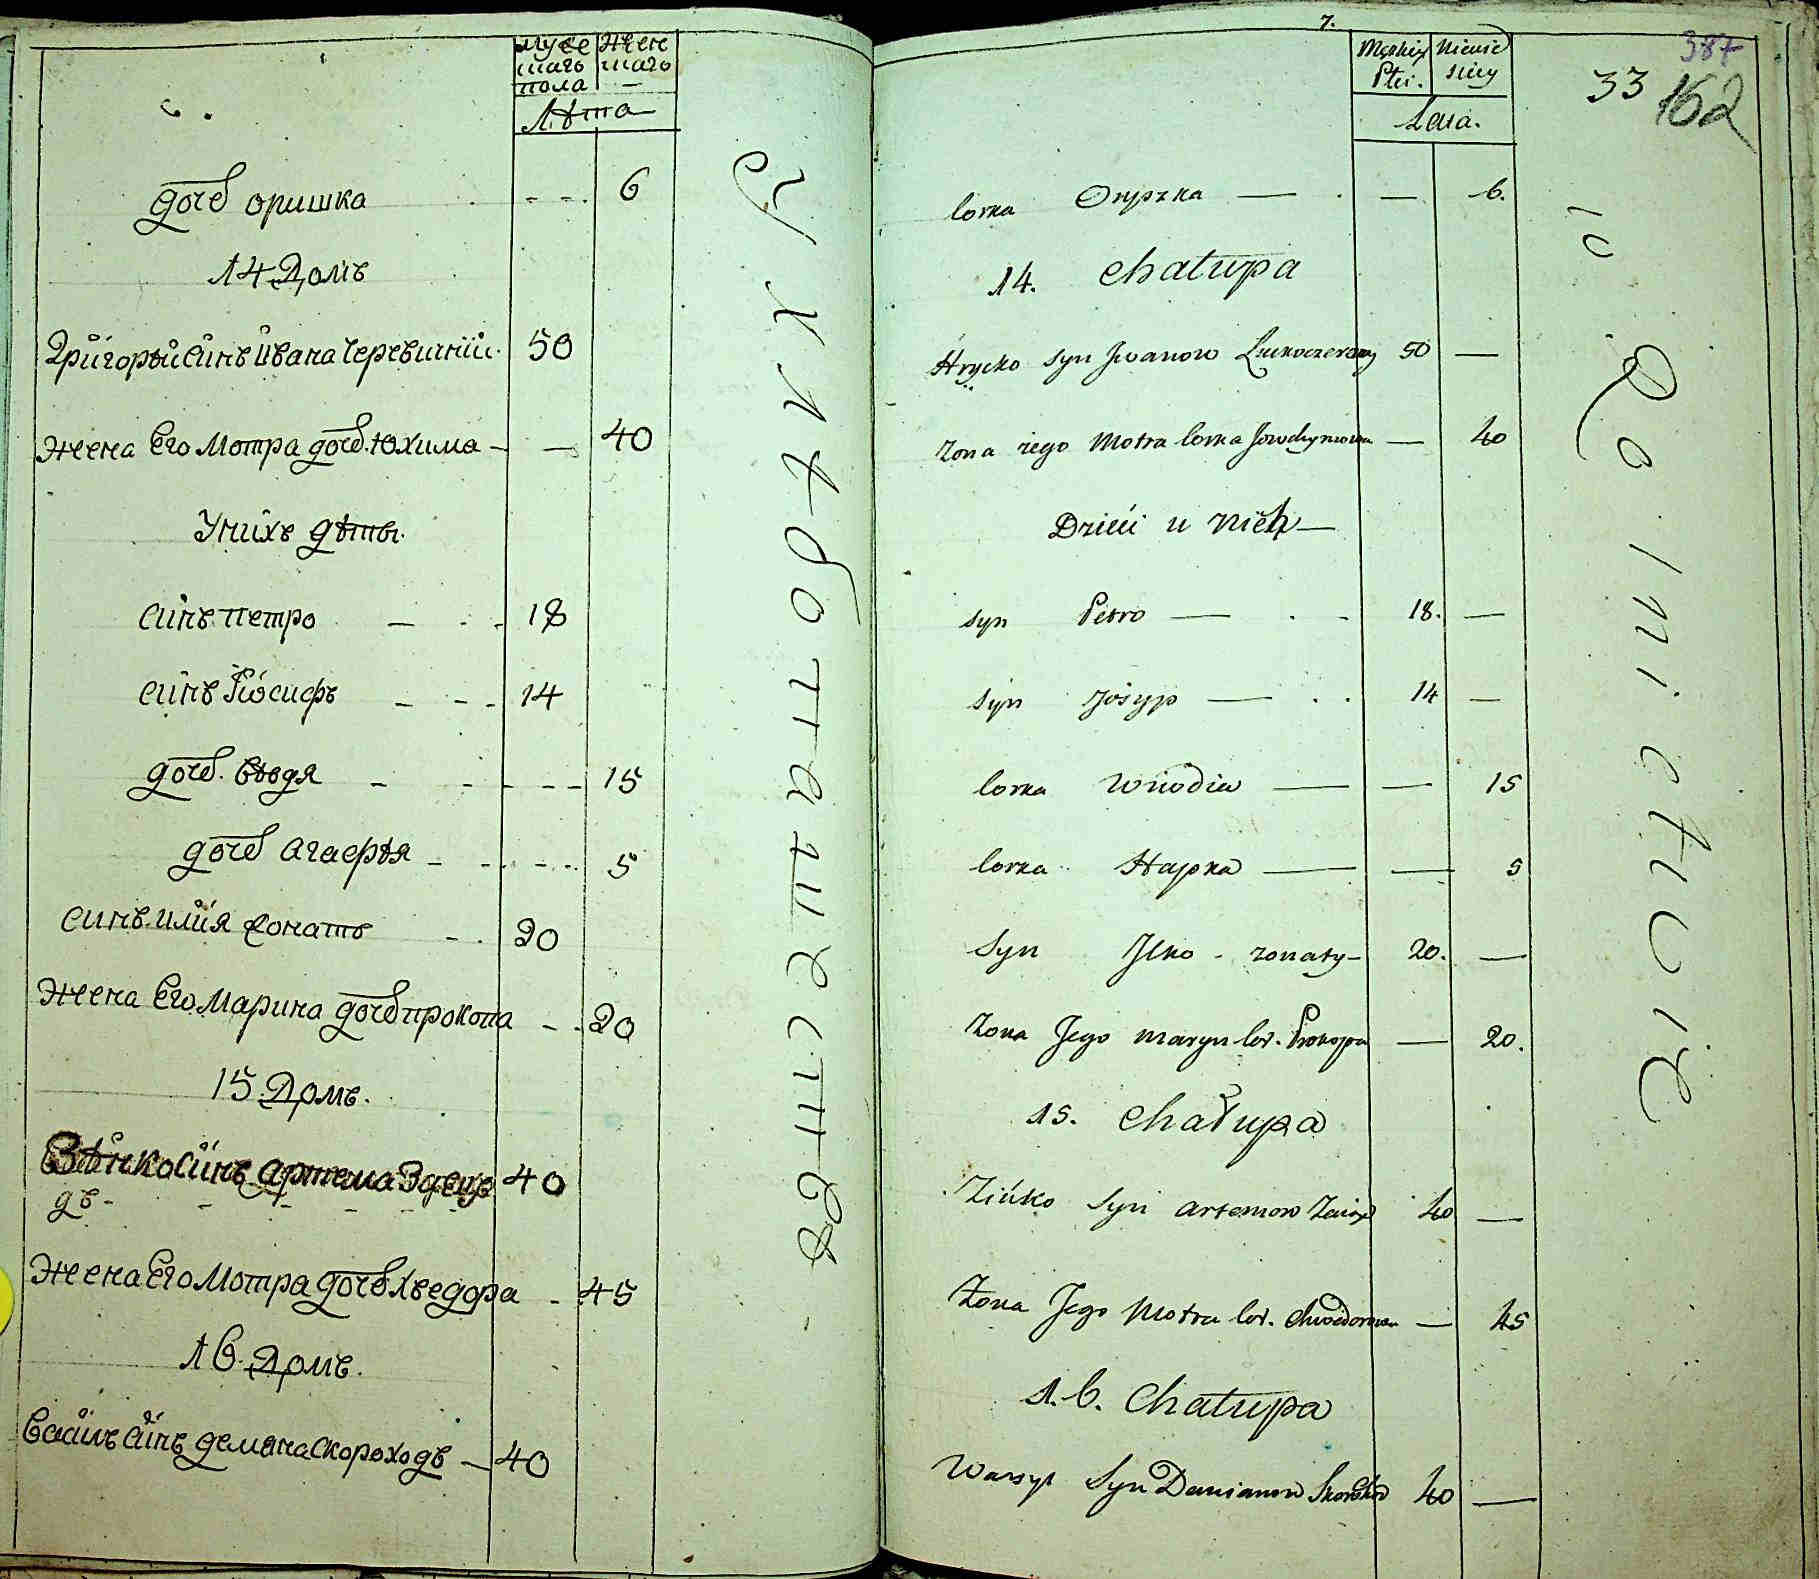 6.
муже жен
шаго шаго
пола —
Лѣта
дочь оришка - - - 6
14 Домъ
Григорый синъ ивана Черевичнiй 50
жена Его Мотра дочь юхима - — 40
У нихъ дѣты.
синъ петро — - - 18
синъ Иосифъ - - - 14
дочь Вѣвдя - - - - - 15
дочь агафѣя - - - - 5
синъ илия жонатъ - - 20
жена Его Марина дочь прокопа - - 20
15 Домъ.
Зѣнко синъ артема Заец 40
дъ - - - - -
жена Его Мотра дочь Хведора - 45
16 Домъ.
Василь синъ демяна Скороходъ — 40
7.
387
33 162
Męzkiey Niewie
Płci. sciey
Lata.
corka Oryszka — . — 6.
14. Chatupa
Hrycko syn Jwanow 50 —
zona iego Motra corka Jowchymowa — 40
Dzieci u nich —
syn Petro — . - 18. —
syn Josyp — . . 14 —
corka Wiwdia — — 15
corka Hapka — — 5
Syn Jlko - zonaty - 20. —
Zona Jego maryn cor. Prokopa — 20.
15. Chałupa
Zińko Syn artemow Zaiąc 40 —
Zona Jego Motra cor. Chwedorowa — 45
16. Chatupa
Wassyl Syn Demianow Skorochod 40 —